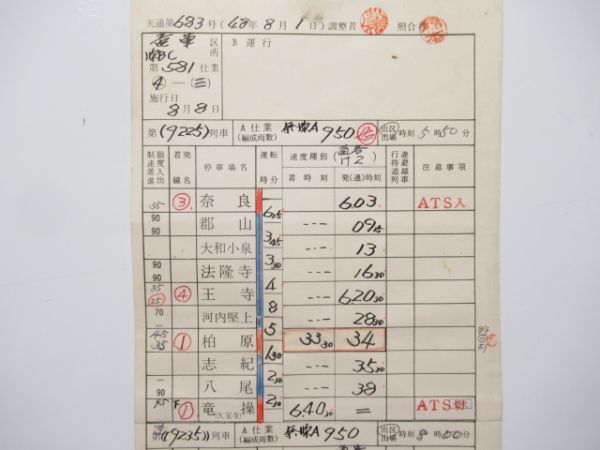 天通第683号(48年8月1日)調整者 照合者
区所 B運行
第581仕業
④—㊂
施行日
8月8日
第(9225)列車 A仕業(編成両数) 950 出区 出場 時刻5時50分
制限速度 進入 進出 着発線名 停車場名 運転時分 速度種別 着時刻 発(通)時刻 行違 待避 追越 列車 注意事項
35 ③ 奈良 6.03 ATS入
6 15
90 90 郡山 --- 09 15
3 45
大和小泉 --- 13
3 30
90 90 法隆寺 --- 16 30
4
35 25 ④ 王寺 --- 6.20 30
8
70 河内堅上 --- 28 30
5
45 35 ① 柏原 33 30 34
1 30
志紀 --- 35 30
2 30
90 八尾 --- 38
2 30
① 竜操 (久宝寺) 6.40 30 = ATS切
第(9235)列車 A仕業(編成両数) 950 出区 出場 時刻8時00分